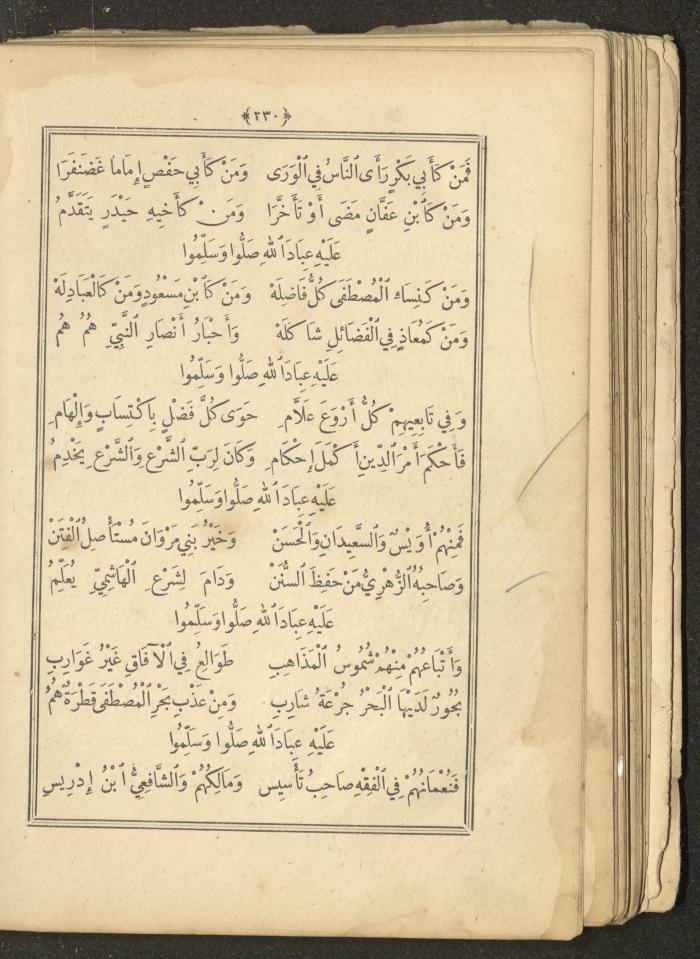 ﴿٢٣٠﴾
فَمَنْ كَأَبِي بَكْرٍ رَأَى النَّاسُ فِي الْوَرَى وَمَنْ كَأَبِي حَفْصٍ إِمَامًا غَضَنْفَرَا
وَمَنْ كَابْنِ عَفَّانٍ مَضَى أَوْ تَأَخَّرَا وَمَنْ كَأَخِيهِ حَيْدَرٍ يَتَقَدَّمُ
عَلَيْهِ عِبَادَ اللهِ صَلُّوا وَسَلِّمُوا
وَمَنْ كَنِسَاءِ الْمُصْطَفَى كُلُّ فَاضِلَهْ وَمَنْ كَابْنِ مَسْعُودٍ وَمَنْ كَالْعَبَادِلَهْ
وَمَنْ كَمُعَاذٍ فِي الْفَضَائِلِ شَاكَلَهْ وَأَحْبَارُ أَنْصَارِ النَّبِيِّ هُمُ هُمُ
عَلَيْهِ عِبَادَ اللهِ صَلُّوا وَسَلِّمُوا
وَفِي تَابِعِيهِمْ كُلُّ أَرْوَعَ عَلَّامِ حَوَى كُلَّ فَضْلٍ بِاكْتِسَابٍ وَإِلْهَامِ
فَأَحْكَمَ أَمْرَ الدِّينِ أَكْمَلَ إِحْكَامِ وَكَانَ لِرَبِّ الشَّرْعِ وَالشَّرْعِ يَخْدِمُ
عَلَيْهِ عِبَادَ اللهِ صَلُّوا وَسَلِّمُوا
فَمِنْهُمْ أُوَيْسٌ وَالسَّعِيدَانِ وَالْحَسَنْ وَخَيْرُ بَنِي مَرْوَانَ مُسْتَأْصِلُ الْفِتَنْ
وَصَاحِبُهُ الزُّهْرِيُّ مَنْ حَفِظَ السُّنَنْ وَدَامَ لِشَرْعِ الْهَاشِمِيِّ يُعَلِّمُ
عَلَيْهِ عِبَادَ اللهِ صَلُّوا وَسَلِّمُوا
وَأَتْبَاعُهُمْ مِنْهُمْ شُمُوسُ الْمَذَاهِبِ طَوَالِعُ فِي الْآفَاقِ غَيْرُ غَوَارِبِ
بُحُورٌ لَدَيْهَا الْبَحْرُ جُرْعَةُ شَارِبِ وَمِنْ عَذْبِ بَحْرِ الْمُصْطَفَى قَطْرَةٌ هُمُ
عَلَيْهِ عِبَادَ اللهِ صَلُّوا وَسَلِّمُوا
فَنُعْمَانُهُمْ فِي الْفِقْهِ صَاحِبُ تَأْسِيسِ وَمَالِكُهُمْ وَالشَّافِعِيُّ ابْنُ إِدْرِيسِ